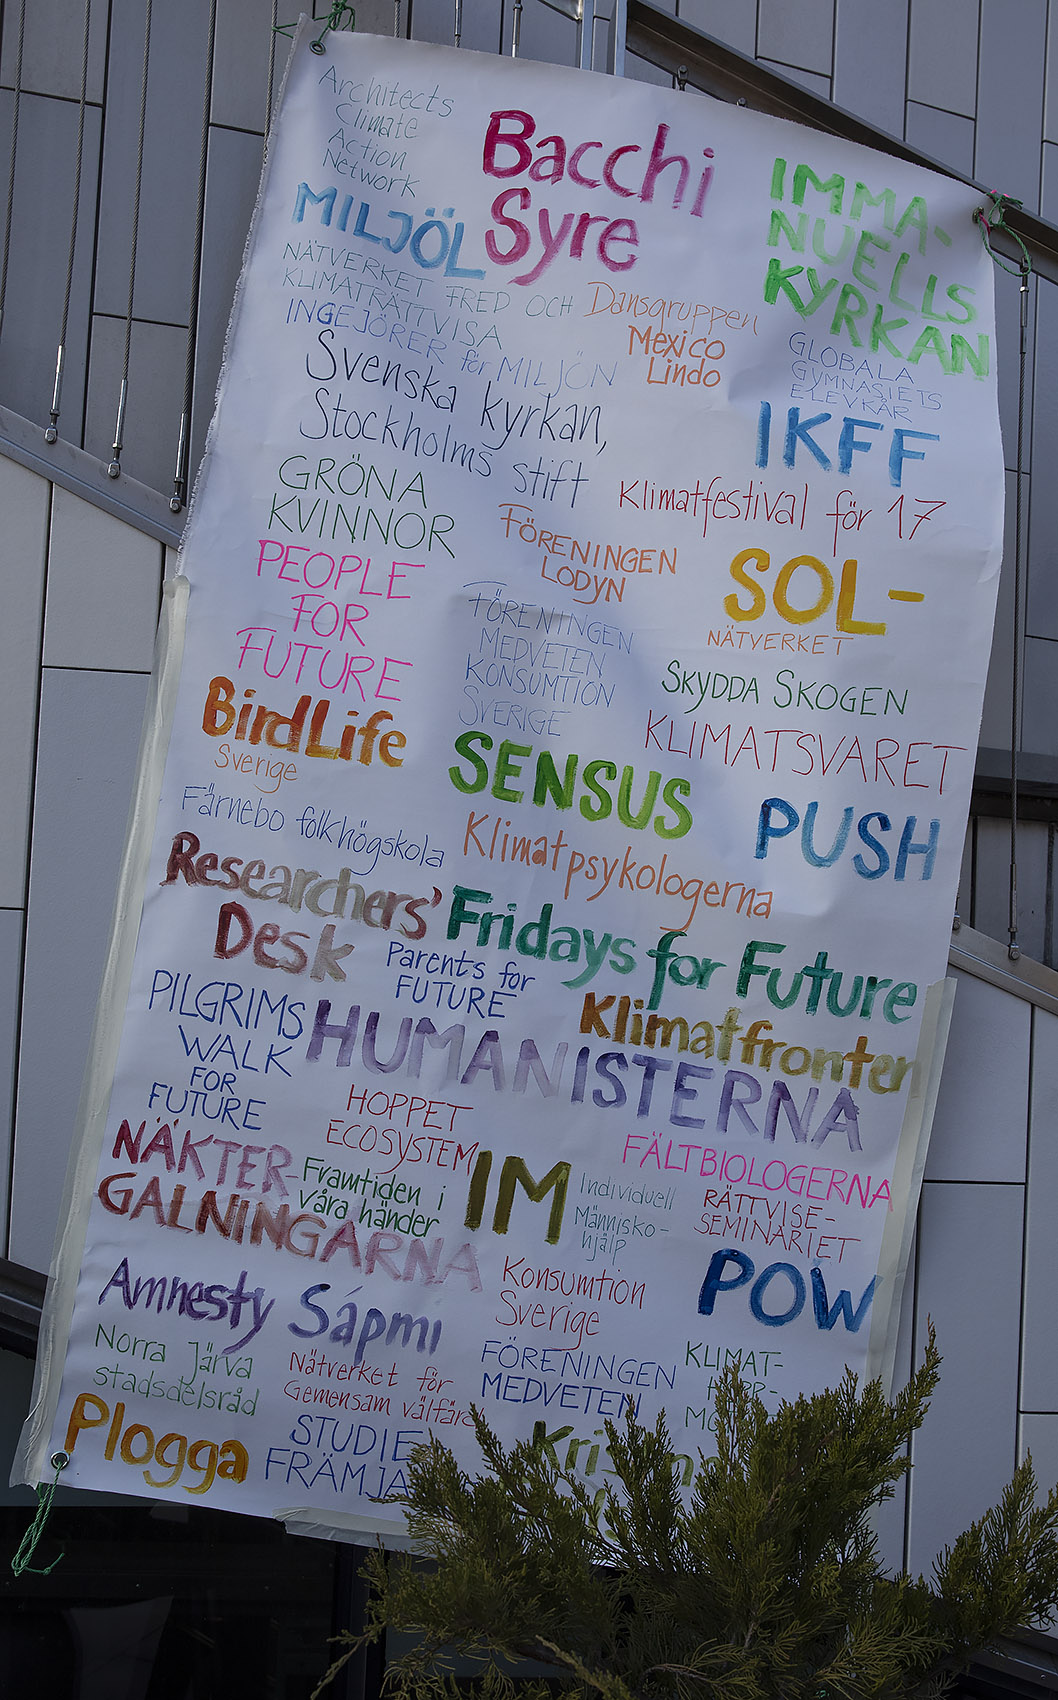 Architects
Climate
Action
Network
Bacchi
Syre
IMMA-
NUELLS
KYRKAN
MILJÖL
NÄTVERKET FRED OCH
KLIMATRÄTTVISA
Dansgruppen
Mexico
Lindo
INGEJÖRER för MILJÖN
GLOBALA
GYMNASIETS
ELEVKÅR
Svenska kyrkan,
Stockholms stift
IKFF
Klimatfestival för 17
GRÖNA
KVINNOR
FÖRENINGEN
LODYN
SOL-
NÄTVERKET
PEOPLE
FOR
FUTURE
FÖRENINGEN
MEDVETEN
KONSUMTION
SVERIGE
SKYDDA SKOGEN
KLIMATSVARET
BirdLife
Sverige
SENSUS
PUSH
Färnebo folkhögskola
Klimatpsykologerna
Researchers'
Desk
Fridays for Future
Parents for
FUTURE
Klimatfronten
PILGRIMS
WALK
FOR
FUTURE
HUMANISTERNA
HOPPET
ECOSYSTEM
FÄLTBIOLOGERNA
NÄKTER-
GALNINGARNA
Framtiden i
våra händer
IM
Individuell
Människo-
hjälp
RÄTTVISE-
SEMINARIET
Konsumtion
Sverige
POW
Amnesty Sápmi
Norra Järva
stadsdelsråd
Nätverket för
Gemensam välfärd
FÖRENINGEN
MEDVETEN
KLIMAT-
Plogga
STUDIE
FRÄMJA